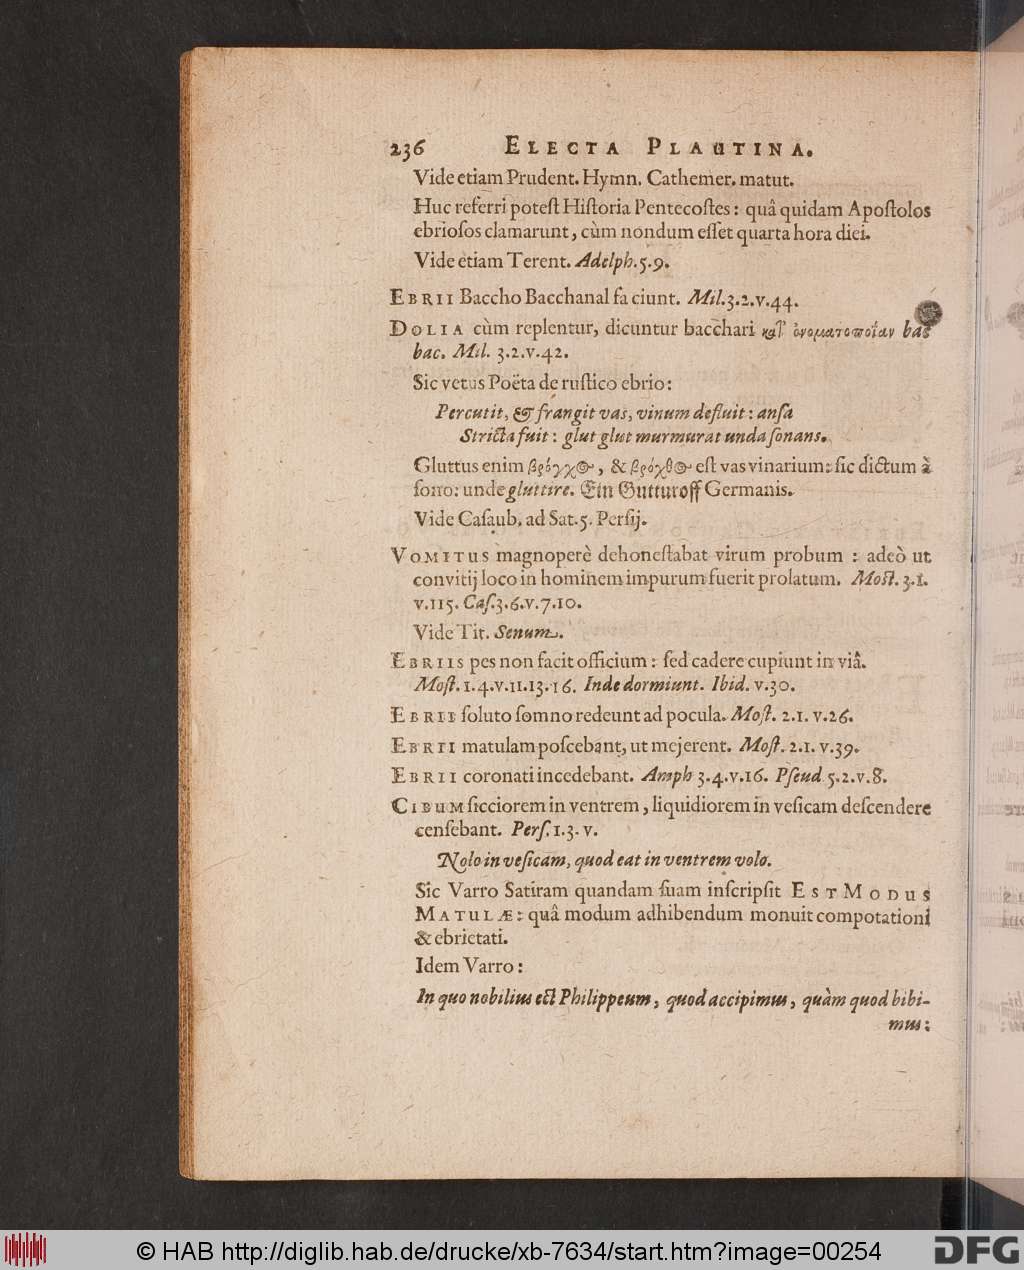 236 ELECTA PLAUTINA.
Vide etiam Prudent. Hymn. Cathemer. matut.
Huc referri poteſt Hiſtoria Pentecoſtes: quâ quidam Apoſtolos
ebrioſos clamarunt, cùm nondum eſſet quarta hora diei.
Vide etiam Terent. Adelph. 5. 9.
EBRII Baccho Bacchanal faciunt. Mil. 3. 2. v. 44.
DOLIA cùm replentur, dicuntur bacchari κατ᾽ ὀνοματοποΐαν bac
bac. Mil. 3. 2. v. 42.
Sic vetus Poëta de ruſtico ebrio:
Percutit, & frangit vas, vinum defluit: anſa
Stricta fuit: glut glut murmurat unda ſonans.
Gluttus enim βρόγχος, & βρόχθος eſt vas vinarium: ſic dictum à
ſono: unde gluttire. Ein Gutturoff Germanis.
Vide Caſaub. ad Sat. 5. Perſij.
VOMITUS magnoperè dehoneſtabat virum probum: adeò ut
convitij loco in hominem impurum fuerit prolatum. Moſt. 3. 1.
v. 115. Caſ. 3. 6. v. 7. 10.
Vide Tit. Senum.
EBRIIS pes non facit officium: ſed cadere cupiunt in viâ.
Moſt. 1. 4. v. 11. 13. 16. Inde dormiunt. Ibid. v. 30.
EBRII ſoluto ſomno redeunt ad pocula. Moſt. 2. 1. v. 26.
EBRII matulam poſcebant, ut mejerent. Moſt. 2. 1. v. 39.
EBRII coronati incedebant. Amph 3. 4. v. 16. Pſeud 5. 2. v. 8.
CIBUM ſicciorem in ventrem, liquidiorem in veſicam deſcendere
cenſebant. Perſ. 1. 3. v.
Nolo in veſicam, quod eat in ventrem volo.
Sic Varro Satiram quandam ſuam inſcripſit EST MODUS
MATULÆ: quâ modum adhibendum monuit compotationi
& ebrietati.
Idem Varro:
In quo nobilius eſt Philippeum, quod accipimus, quàm quod bibi-
mus:
© HAB http://diglib.hab.de/drucke/xb-7634/start.htm?image=00254
DFG